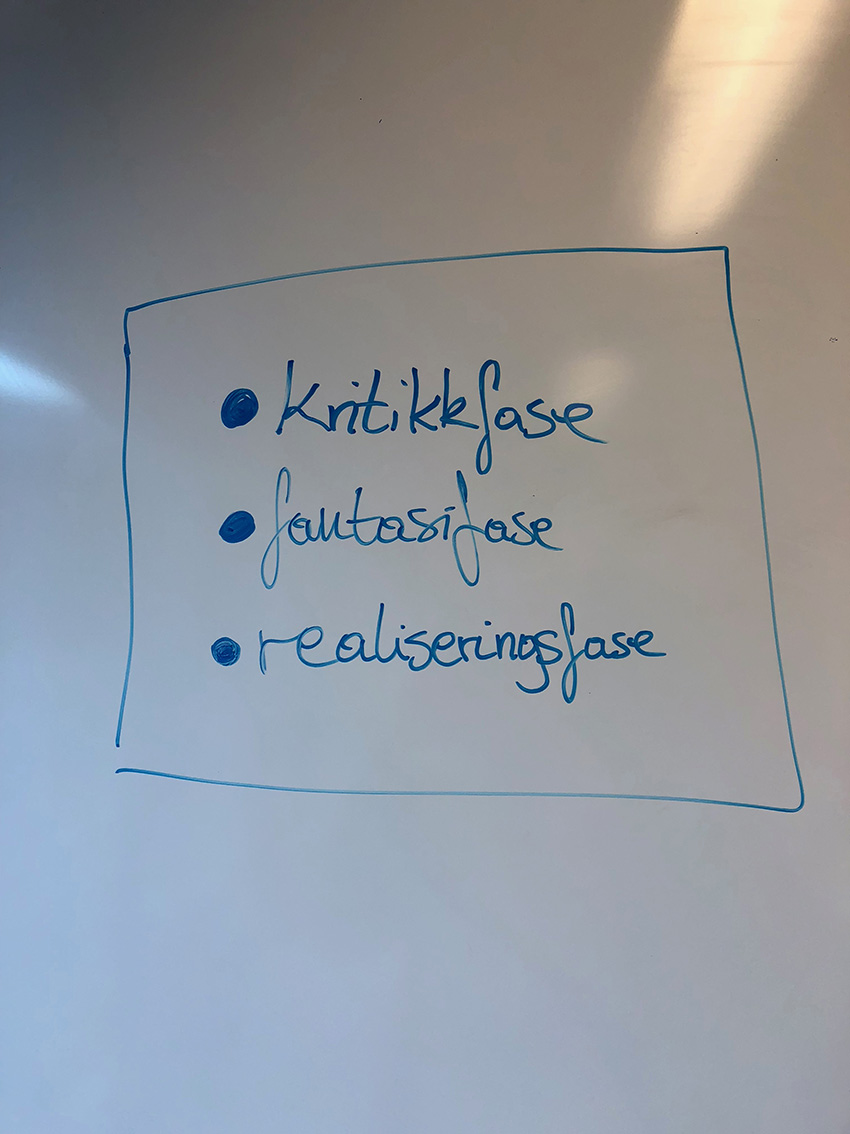 • Kritikkfase
• fantasifase
• realiseringsfase